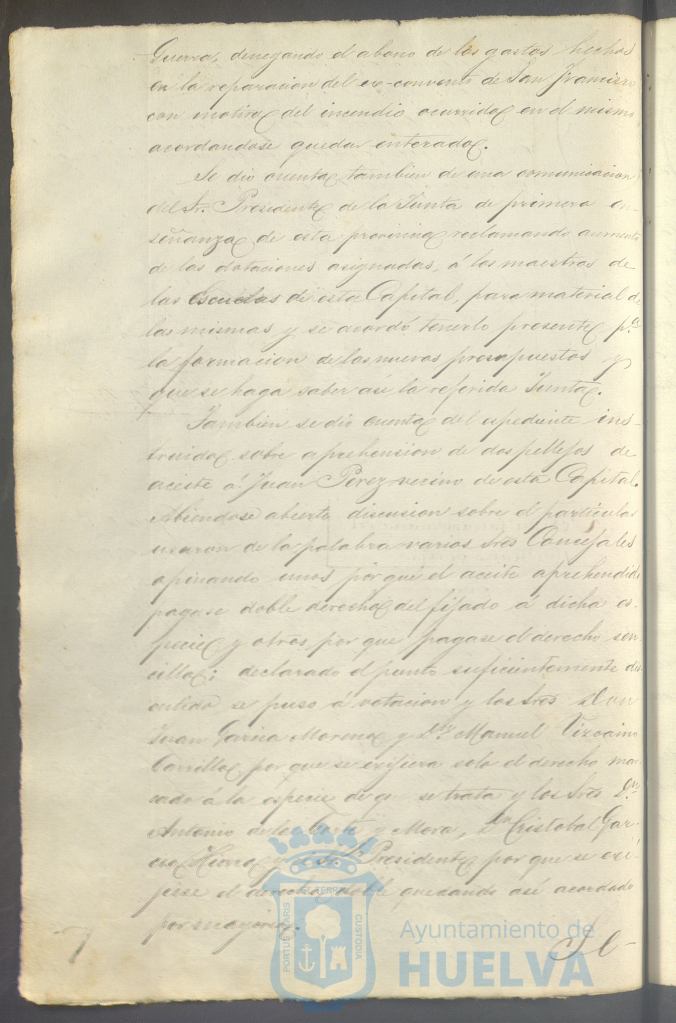 Guerra, denegando el abono de los gastos hechos
en la reparacion del ex-convento de San Francisco
con motivo del incendio ocurrido en el mismo
acordandose quedar enterado.
Se dio cuenta tambien de una comunicacion
del Sr. Presidente de la Junta de primera en-
señanza de esta provincia reclamando aumento
de las dotaciones asignadas, á los maestros de
las escuelas de esta Capital, para material de
las mismas y se acordó tenerlo presente p.ª
la formacion de los nuevos presupuestos y
que se haga saber asi la referida Junta.
Tambien se dio cuenta del espediente ins-
truido sobre aprehension de dos pellejos de
aceite á Juan Perez vecino de esta Capital.
Abiendose abierto discusion sobre el particular
usaron de la palabra varios Sres Concejales
opinando unos por qué el aceite aprehendido
pagase doble derecho del fijado a dicha es-
pecie y otros por que pagase el derecho sen
cillo; declarado el punto suficientemente dis
cutido se puso á votacion y los Sres Don
Juan Garcia Moreno y D.n Manuel Vizcaino
Carrillo, por que se exijiera solo el derecho mar
cado á la especie de q. se trata y los Sres D.n
Antonio de la Corte y Mora, D.n Cristobal Gar-
cia y el Sr. Presidente por que se exi-
jiese el derecho doble quedando asi acordado
por mayoria.
Se
PORTUS MARIS ET TERRAE CUSTODIA
Ayuntamiento de
HUELVA